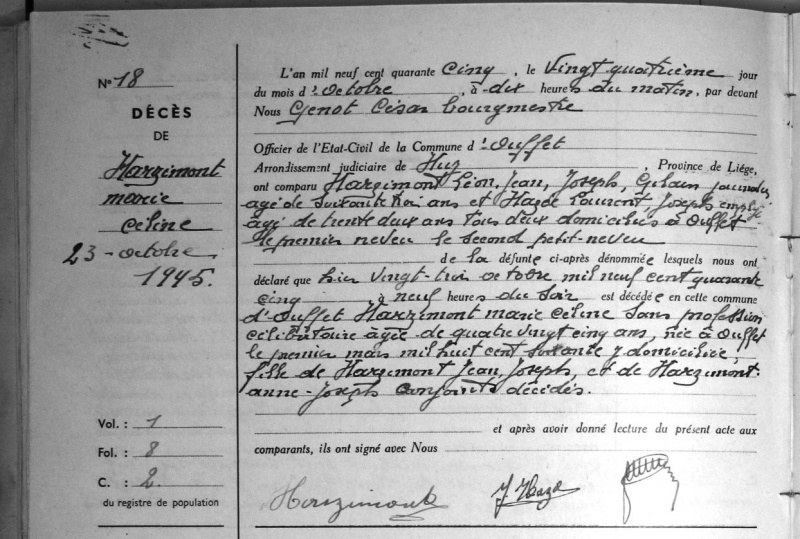 N° 18
DÉCÈS
DE
Harzimont
marie
Céline
23 - octobre
1945.
Vol. : 1
Fol. : 8
C. : 2
du registre de population
L'an mil neuf cent quarante cinq, le vingt quatrième jour
du mois d'octobre, à dix heures du matin, par devant
Nous Genot César bourgmestre
Officier de l'Etat-Civil de la Commune d'Ouffet
Arrondissement judiciaire de Huy, Province de Liége,
ont comparu Harzimont Léon, Jean, Joseph, Ghilain journalier
agé de soixante trois ans et Haze Laurent Joseph employé
agé de trente deux ans tous deux domiciliés à Ouffet
le premier neveu le second petit-neveu
de la défunte ci-après dénommée lesquels nous ont
déclaré que hier vingt-trois octobre mil neuf cent quarante
cinq à neuf heures du soir est décédée en cette commune
d'Ouffet Harzimont marie Céline sans profession
célibataire âgée de quatre vingt cinq ans, née à Ouffet
le premier mars mil huit cent soixante y domiciliée,
fille de Harzimont Jean, Joseph, et de Harzimont
anne-Joseph conjoints décédés.
et après avoir donné lecture du présent acte aux
comparants, ils ont signé avec Nous
Harzimont
J Haze